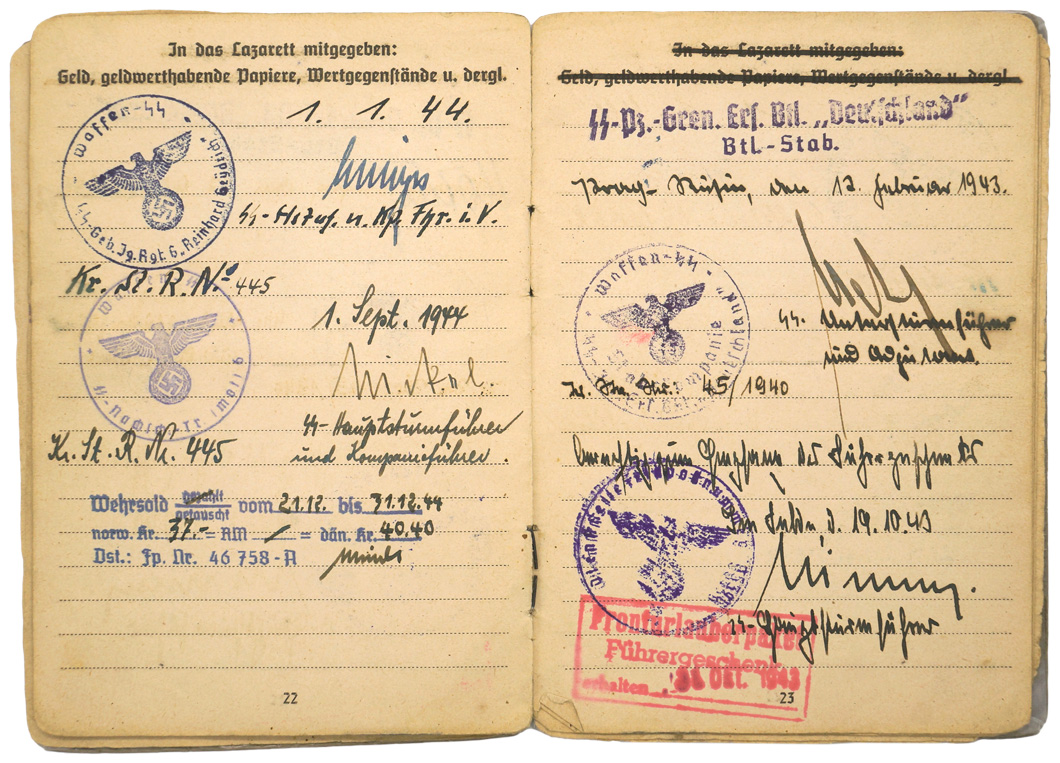 In das Lazarett mitgegeben:
Geld, geldwerthabende Papiere, Wertgegenstände u. dergl.
Waffen-SS
SS-Geb. Jg. Rgt. 6 „Reinhard Heydrich"
1. 1. 44.
SS-Hstuf. u. Kp. Fhr. i. V.
Kr. St. R. No. 445
1. Sept. 1944
SS-Hauptsturmführer
und Kompanieführer.
Kr. St. R. Nr. 445
Wehrsold gezahlt getauscht vom 21.12. bis 31.12.44
norw. Kr. 37.- = RM / = dän. Kr. 40.40
Dst.: Fp. Nr. 46 758-A
22
In das Lazarett mitgegeben:
Geld, geldwerthabende Papiere, Wertgegenstände u. dergl.
SS-Pz.-Gren. Ers. Btl. „Deutschland"
Btl.-Stab.
Prag-Rusin, den 12. Februar 1943.
Waffen-SS
Stabskompanie
SS-Untersturmführer
und Adjutant.
45/1940
Berechtigt zum Empfang des Führergeschenkes
d. 19.10.43
SS-Hauptsturmführer
Fronturlauberpaket
Führergeschenk
erhalten Okt. 1943
23